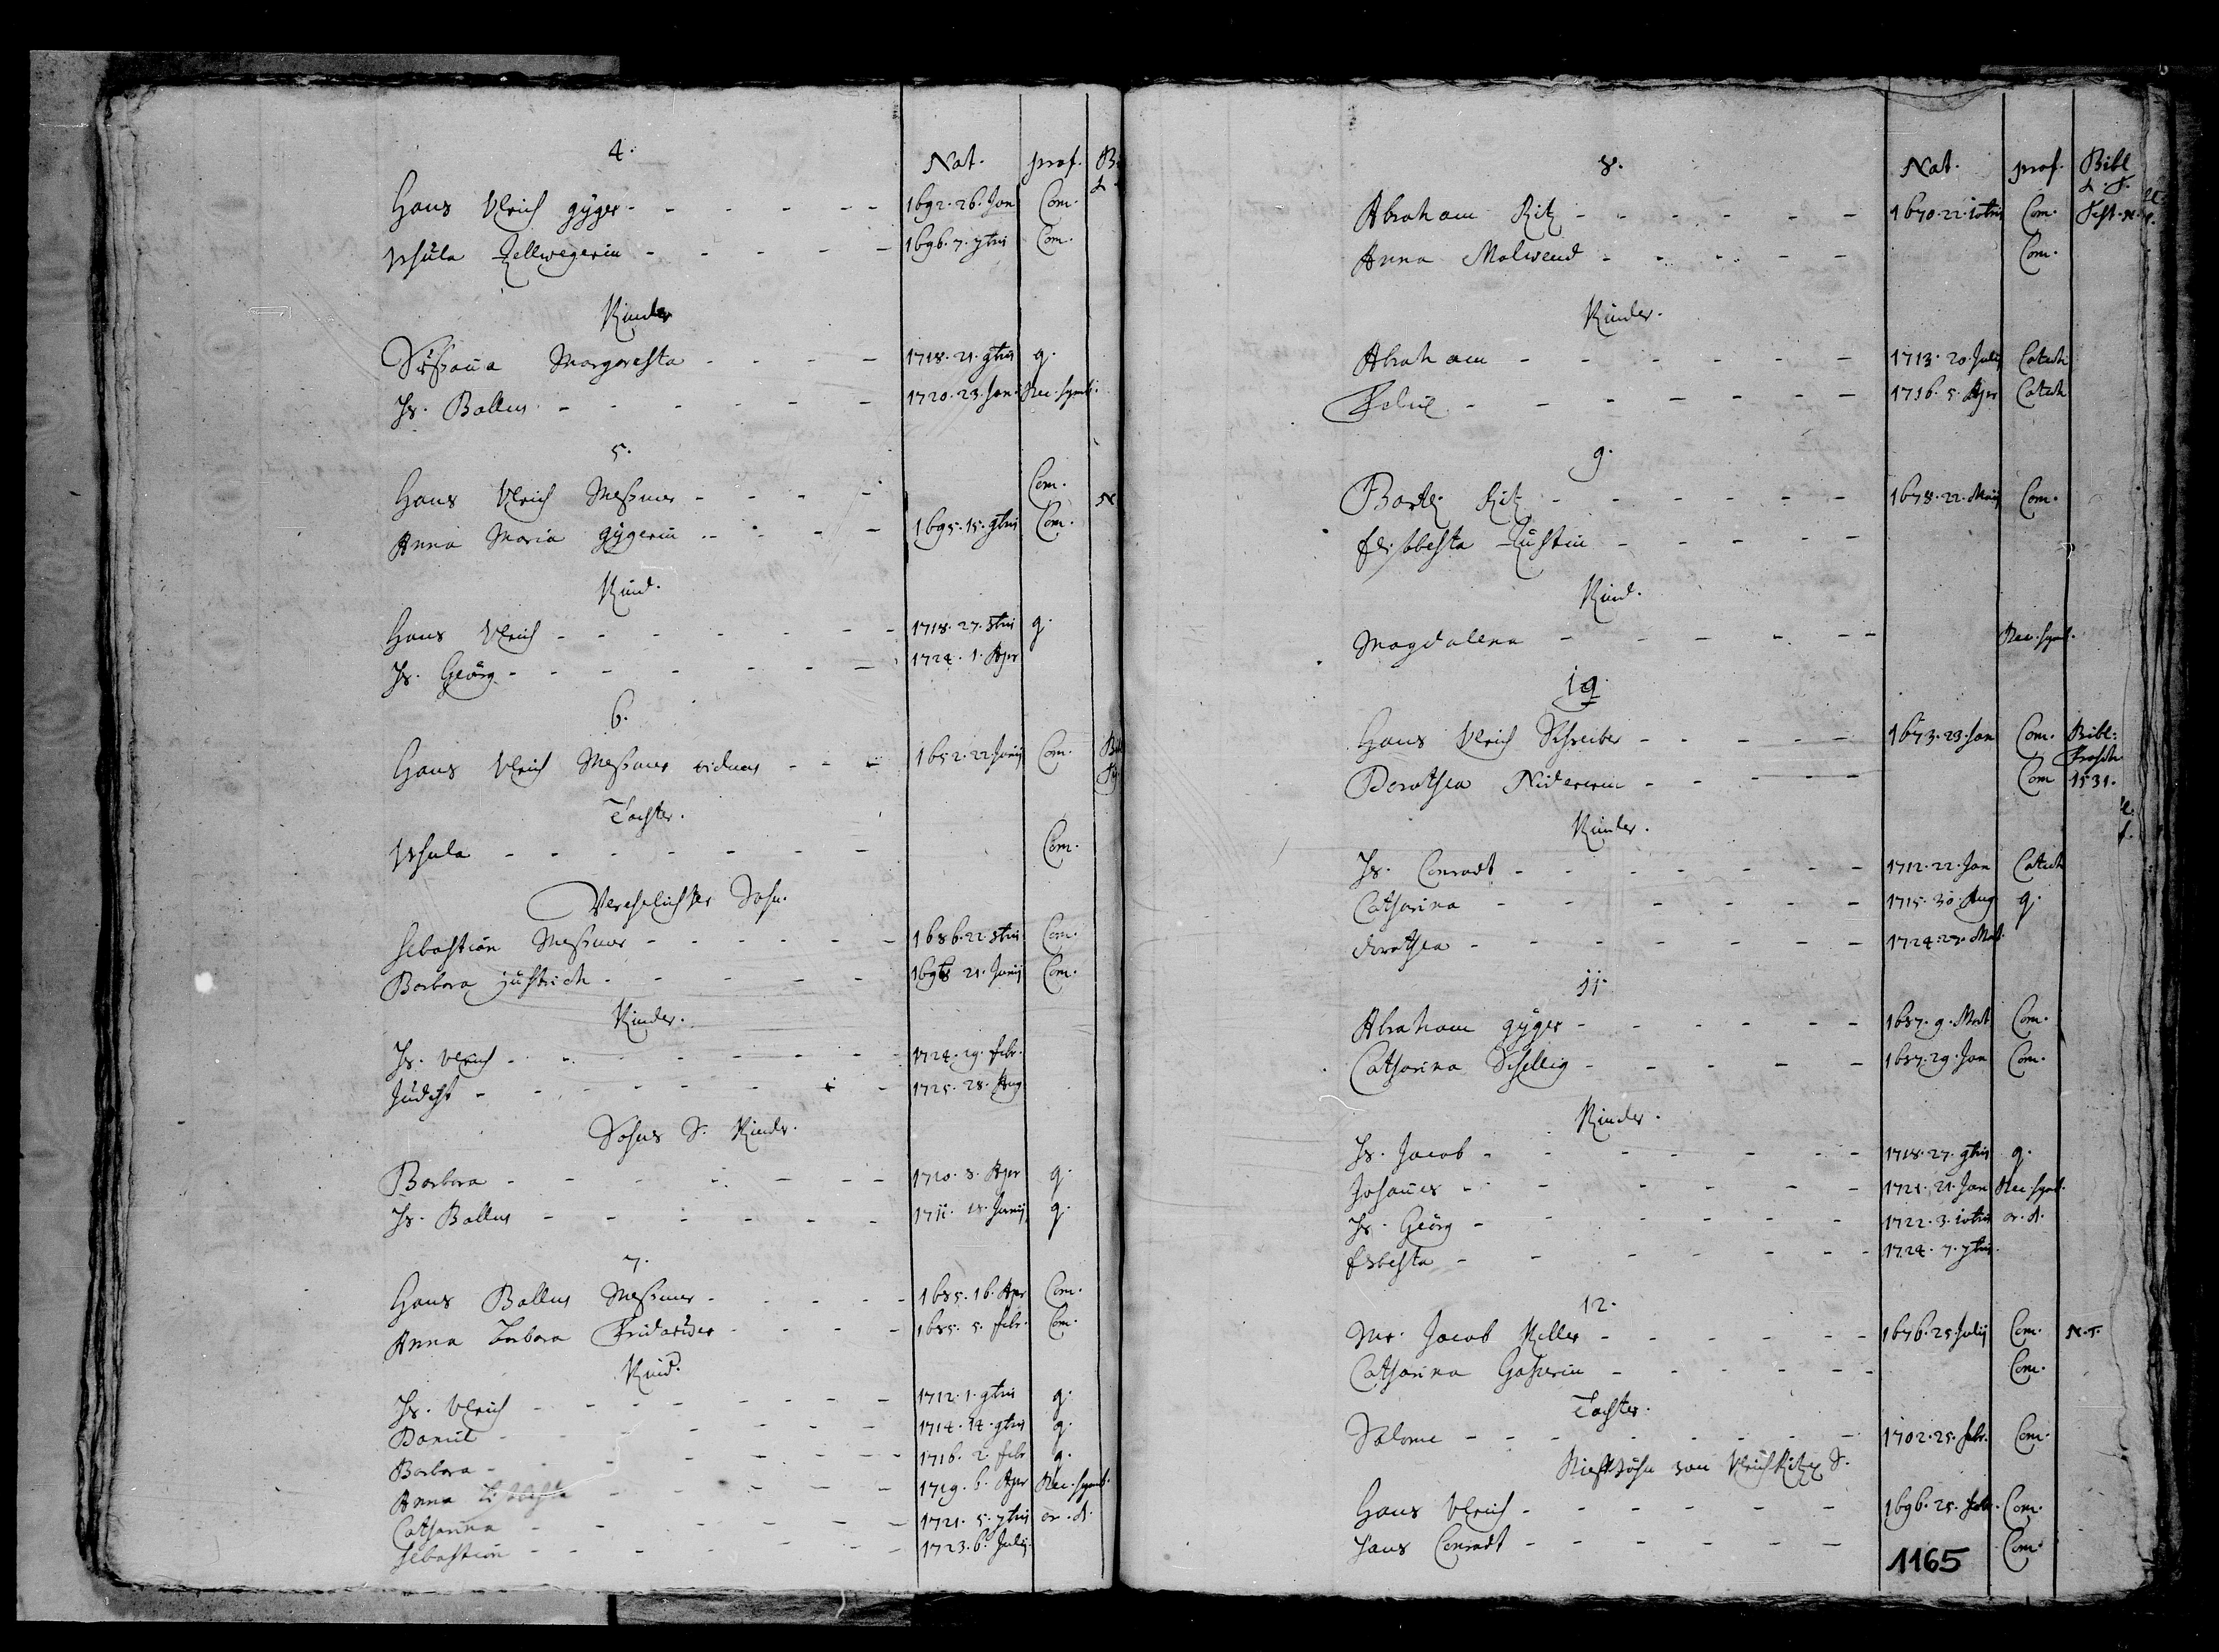 4.
Nat. prof. Bi
Hans Ulrich gÿger - - - - - 1692. 26. Jan Com.
Ursula Zellwegerin - - - - - 1696. 7. 7tris Com.
Kinder
Sussana Margaretha - - - - 1718. 21. 9tris q.
Hs. Ballus - - - - - - 1720. 23. Jan. Rec. symb.
5.
Hans Ulrich Messmer - - - - Com.
Anna Maria gÿgerin - - - - 1695. 15. 9tris Com. N
Kind.
Hans Ulrich - - - - - - 1718. 27. 8tris q.
Hs. Geörg - - - - - - 1724. 1. Apr
6.
Hans Ulrich Messmer viduus - - - 1652. 22 Junij Com.
Tochter.
Ursula - - - - - - - Com.
Verehelichter Sohn.
Sebastian Messmer - - - - - 1686. 22. 8tris Com.
Barbara Zusterich - - - - - 21. Junij Com.
Kinder.
Hs. Ulrich - - - - - - 1724. 29. febr.
Judith - - - - - - - 1725. 28. Aug
Sohns S. Kinder.
Barbara - - - - - - - 1710. 8. Apr q.
Hs. Ballus - - - - - - 1711. 18. Junij q.
7.
Hans Ballus Messmer - - - - 1685. 16. Apr Com.
Anna Barbara - - - - 1685. 5. febr. Com.
Kind.
Hs. Ulrich - - - - - - 1712. 1. 9tris q.
Daniel - - - - - - 1714. 14. 9tris q.
Barbara - - - - - - 1716. 2. febr q.
Anna Elsbetha - - - - - 1719. 6. Apr Rec. symb.
Catharina - - - - - - 1721. 5. 7tris or. d.
Sebastian - - - - - - 1723. 6. Julij.
8.
Nat. prof. Bibl
Abraham Ritz - - - - - - 1670. 22. 10tris Com. Test. N.
Anna Malwend - - - - - Com.
Kinder.
Abraham - - - - - - 1713. 20. Julij Catech
Felix - - - - - - - 1716. 5. Apr Catech
9.
Bartli Ritz - - - - - - 1678. 22. Maij Com.
Elisabetha - - - - -
Kind.
Magdalena - - - - - - Rec. symb.
10.
Hans Ulrich Schreiber - - - - - 1673. 23. Jan Com. Bibl:
Frosch
Dorothea Nidererin - - - - - Com 1531.
Kinder.
Hs. Conradt - - - - - - 1712. 22. Jan Catech
Catharina - - - - - - 1715. 30. Aug q.
dorothea - - - - - - - 1724. 27. Mart.
11.
Abraham gÿger - - - - - - 1687. 9. Mart Com.
Catharina Schellig - - - - - 1687. 29. Jan Com.
Kinder.
Hs. Jacob - - - - - - - 1718. 27. 9tris q.
Johannes - - - - - - 1721. 21. Jan Rec. symb.
Hs. Geörg - - - - - - 1722. 3. 10tris or. d.
Elsbetha - - - - - - 1724. 7. 7tris.
12.
Mr. Jacob Keller - - - - - - 1676. 25. Julij Com. N. T.
Catharina - - - - - - Com.
Tochter.
Salome - - - - - - - 1702. 25. febr. Com.
von Ulrich Ritz S.
Hans Ulrich - - - - - - 1696. 25. febr. Com.
Hans Conradt - - - - - - Com.
1165